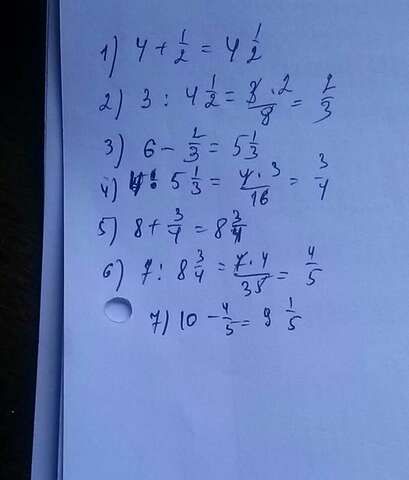 1) 4 + 1/2 = 4 1/2
2) 3 : 4 1/2 = 3·2/9 = 2/3
3) 6 - 2/3 = 5 1/3
4) 4 : 5 1/3 = 4·3/16 = 3/4
5) 8 + 3/4 = 8 3/4
6) 7 : 8 3/4 = 7·4/35 = 4/5
7) 10 - 4/5 = 9 1/5